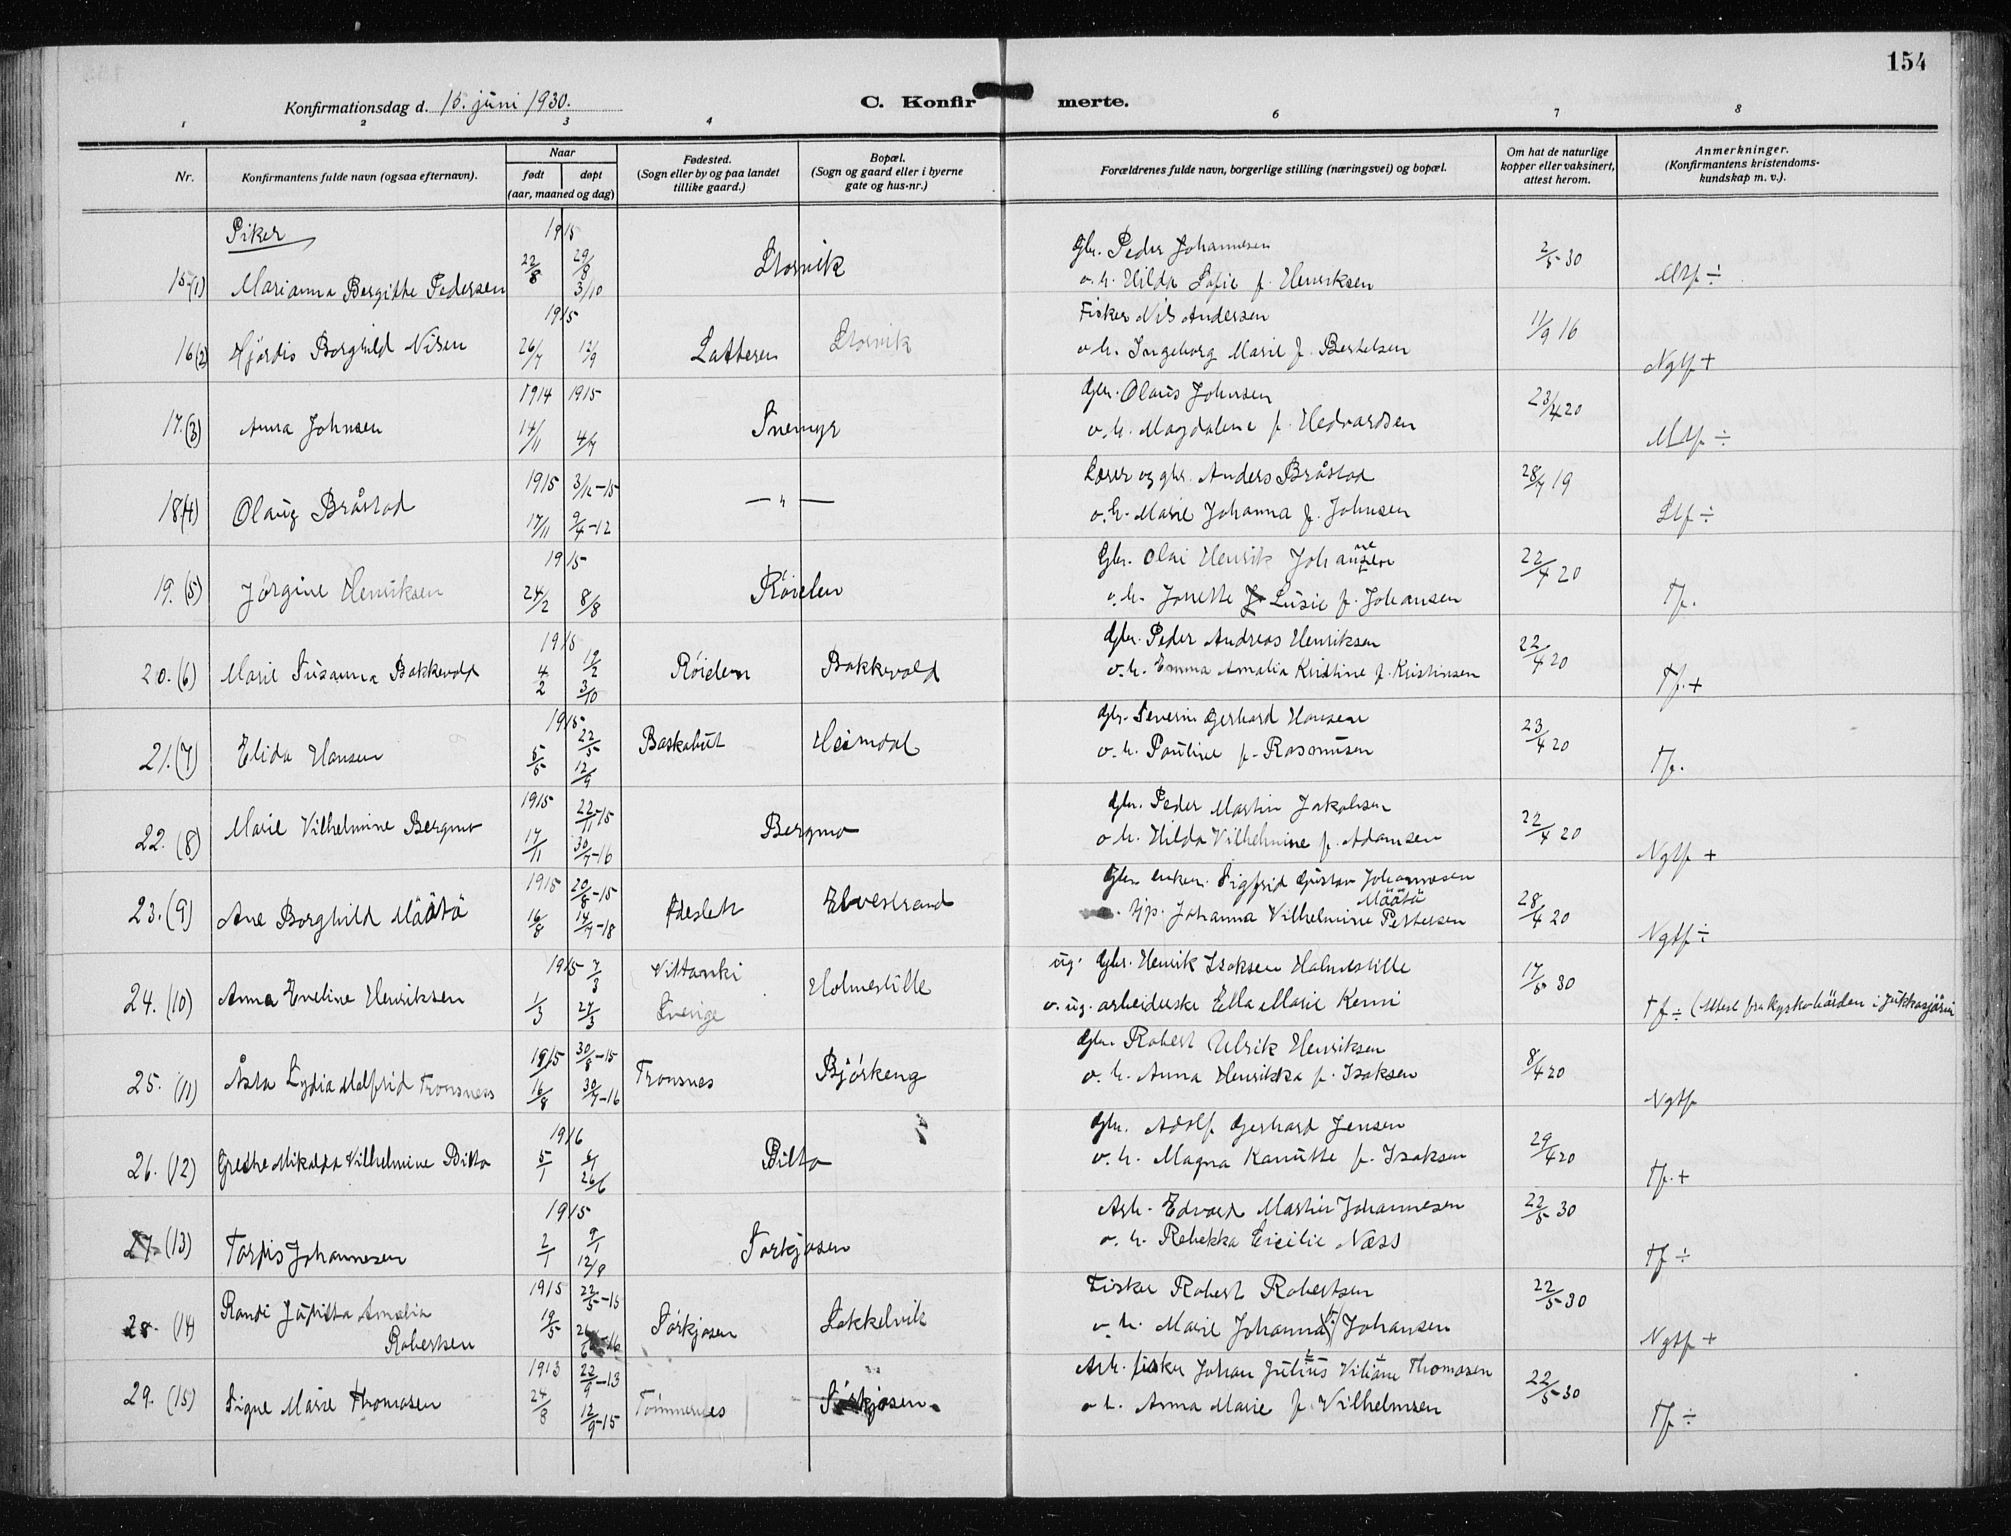 154
Konfirmationsdag d. 15. juni 1930.
C. Konfirmerte.
1 2 3 4 6 7 8
Nr.
Konfirmantens fulde navn (ogsaa efternavn).
Naar
født døpt
(aar, maaned og dag)
Fødested.
(Sogn eller by og paa landet
tillike gaard.)
Bopæl.
(Sogn og gaard eller i byerne
gate og hus-nr.)
Forældrenes fulde navn, borgerlige stilling (næringsvei) og bopæl.
Om hat de naturlige
kopper eller vaksinert,
attest herom.
Anmerkninger.
(Konfirmantens kristendoms-
kundskap m. v.).
Piker
1915
Gbr. Peder Johannesen
15.(1) Marianna Bergithe Pedersen 22/8 29/8 3/10 Storvik
o. h. Hilda Sofie f. Henriksen 2/5 30 Mtf ÷
1915
Fisker Nils Andersen
16(2) Hjørdis Borghild Nilsen 26/7 12/9 Latteren Storvik
o h. Ingeborg Marie f. Bertelsen 11/9 16 Ngtf +
1914 1915
Gbr. Olaus Johnsen
17.(3) Anna Johnsen 14/11 4/7 Snemyr
o. h. Magdalene f. Hedvardsen 23/4 20 Mtf ÷
1915 3/12-15
Lærer og gbr. Anders Bråstad
18(4) Olaug Bråstad 17/11 9/4-12 — " —
o. h. Marie Johanna f. Johnsen 28/7 19 Stf ÷
1915
Gbr. Olai Henrik Johannesen
19. (5) Jørgine Henriksen 24/2 8/8 Røielen
o. h. Jonette Lusie f. Johansen 22/4 20 Tf.
1915
Gbr. Peder Andreas Henriksen
20. (6) Marie Susanna Bakkevold 4/2 19/2 3/10 Røielen Bakkevold
o. h. Emma Amalia Kristine f. Kristinsen 22/4 20 Tf. +
1915
Gbr. Severin Gerhard Hansen
21. (7) Elida Hansen 5/5 22/5 12/9 Baskabut Heimdal
o. h. Pauline f. Rasmusen 23/4 20 Tf.
1915 22/11-15
Gbr. Peder Martin Jakobsen
22. (8) Marie Vilhelmine Bergmo 17/11 30/7-16 Bergmo
o h. Hilda Vilhelmine f. Adamsen 22/4 20 Ngtf +
1915 20/8-15
Gbr. enkem. Sigfrid Gustav Johannesen
Määtä
23. (9) Ane Borghild Määtä 16/8 14/7-18 Fdeslett Elvestrand
Hjp. Johanna Vilhelmine Pettersen 28/4 20 Ngtf ÷
1915 7/3 Vittanki
ug. Gbr. Henrik Isaksen Holmestille
24. (10) Anna Eveline Henriksen 1/3 27/3 Sverige Holmestille
o. ug. arbeiderske Ella Marie Kemi 17/5 30 Tf ÷ (Attest fra Kyrkohärden i Jukkasjärvi
1915 30/8-15
Gbr. Robert Ulrik Henriksen
25. (11) Åsta Lydia Malfrid Tronsnes 16/8 30/7-16 Tronsnes Bjørkeng
o. h. Anna Henrikka f. Isaksen 8/4 20 Ngtf
1916
Gbr. Adolf Gerhard Jensen
26. (12) Grethe Mikalda Vilhelmine Bilto 5/1 6/1 26/6 Bilto
o. h. Magna Kanutte f. Isaksen 29/4 20 Tf. +
1915
Arb. Edvard Martin Johannesen
27. (13) Tordis Johannesen 2/1 9/1 12/9 Sørkjosen
o. h. Rebekka Cicilie Næss 22/5 30 Tf ÷
1915 22/5-15
Fisker Robert Robertsen
28. (14) Randi Julitta Amalia
Robertsen 19/5 Sørkjosen Sakkelvik
o. h. Marie Johanna f. Johansen 22/5 30 Ngtf +
1913 22/9-13
Arb. fisker Johan Julius Viliam Thomasen
29. (15) Signe Marie Thomasen 24/8 12/9-15 Tømmernes Sørkjosen.
o h. Anna Marie f. Vilhelmsen 22/5 30 Tf ÷